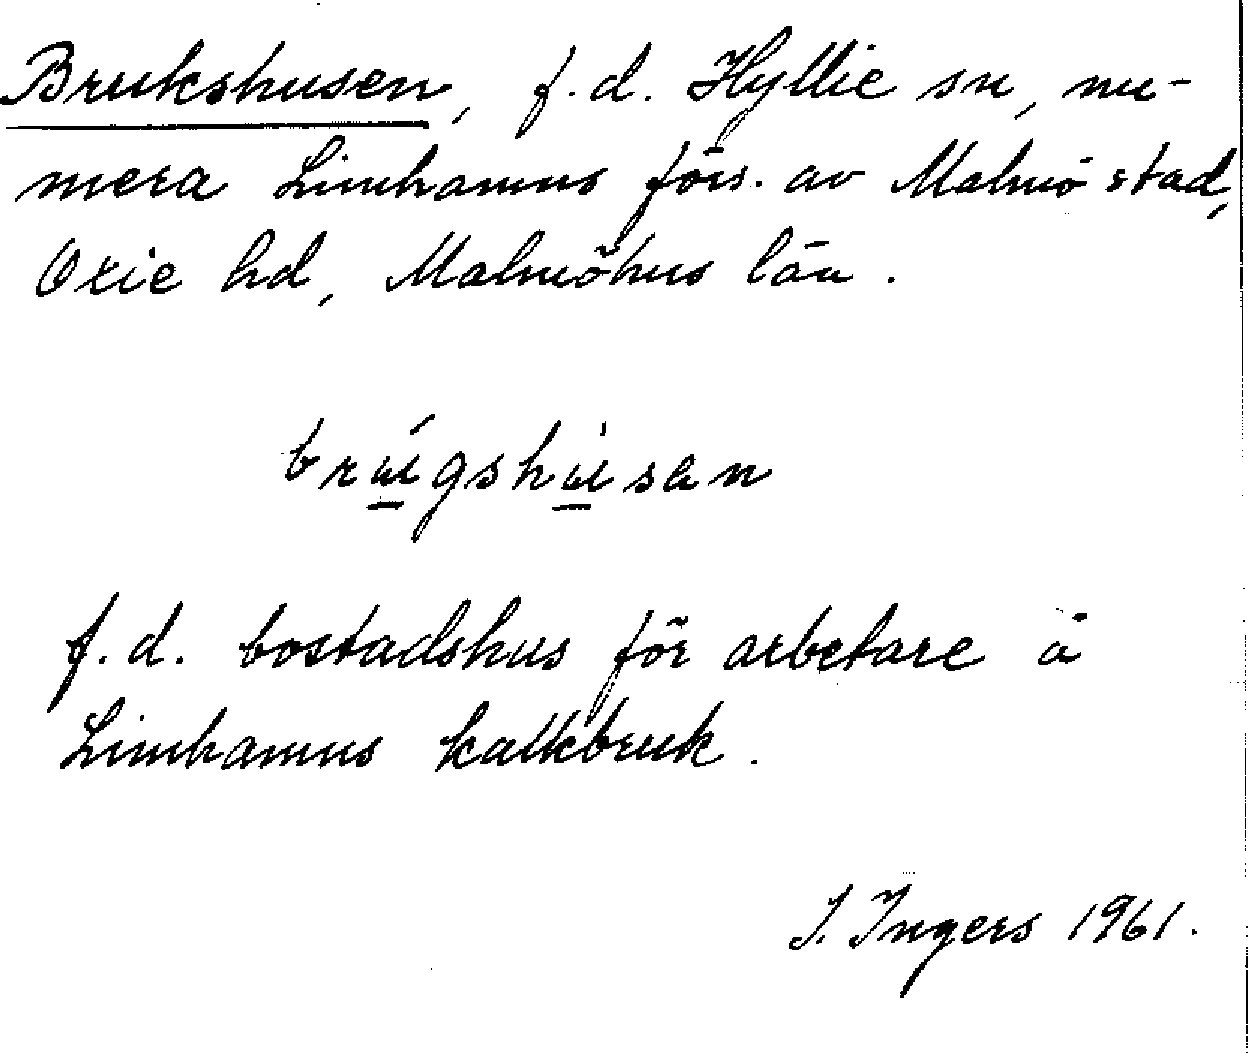 Brukshusen, f.d. Hyllie sn, nu-
mera Limhamns förs. av Malmö stad,
Oxie hd, Malmöhus län.
brúgshùsan
f.d. bostadshus för arbetare å
Limhamns kalkbruk.
I. Ingers 1961.